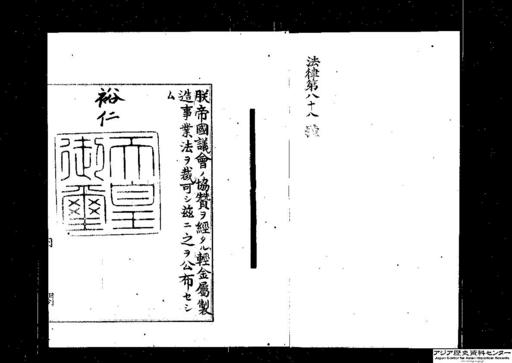 法律第八十八號
朕帝國議會ノ協贊ヲ經タル輕金屬製
造事業法ヲ裁可シ玆ニ之ヲ公布セシ
ム
裕仁
天皇
御璽
内閣
アジア歴史資料センター
Japan Center for Asian Historical Records